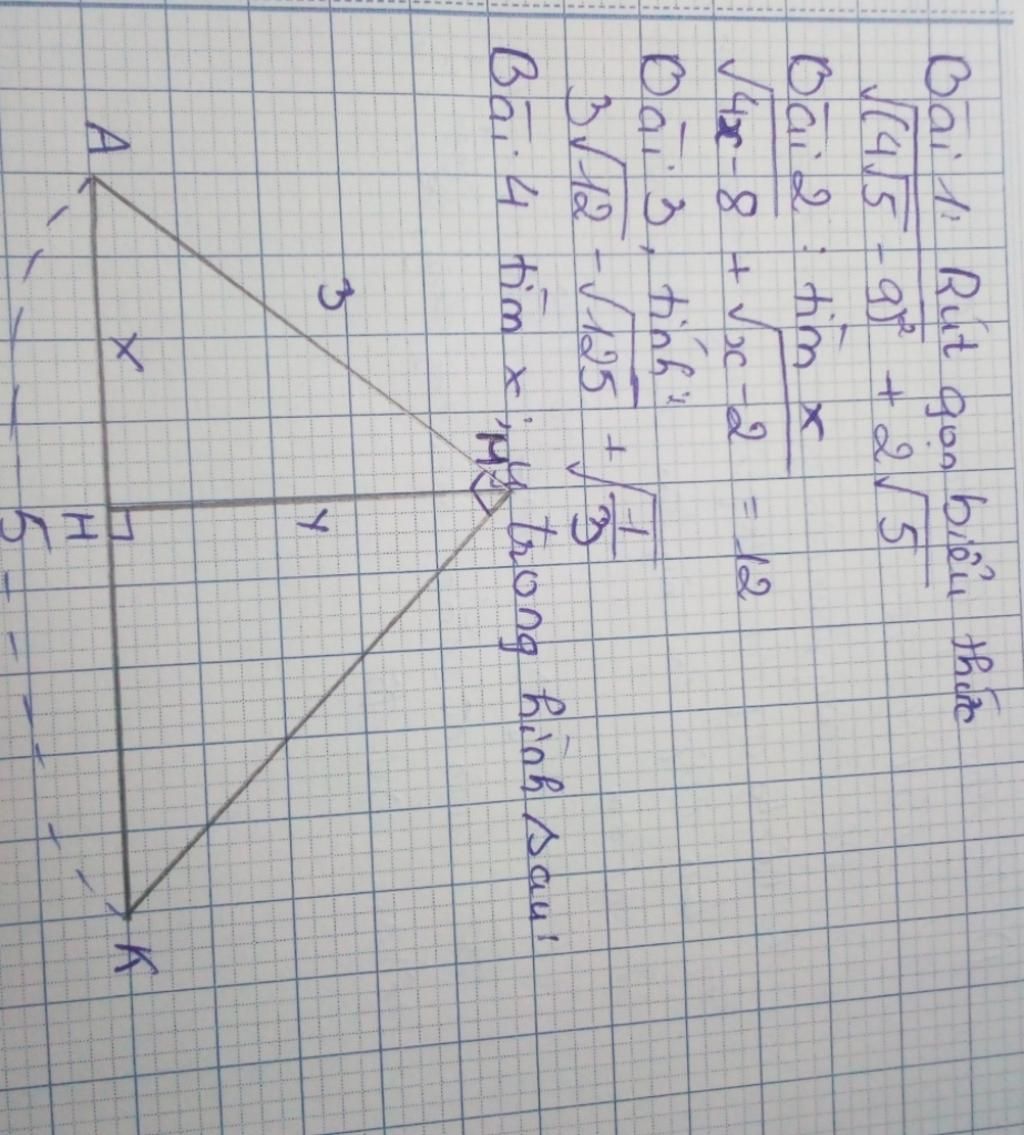 Bài 1: Rút gọn biểu thức
√(4√5 - 9)² + 2√5
Bài 2: tìm x
√4x-8 + √x-2 = 12
Bài 3, tính:
3√12 - √125 + √1/3
Bài 4 tìm x; y trong hình sau:
M
3
Y
A
x
H
K
5